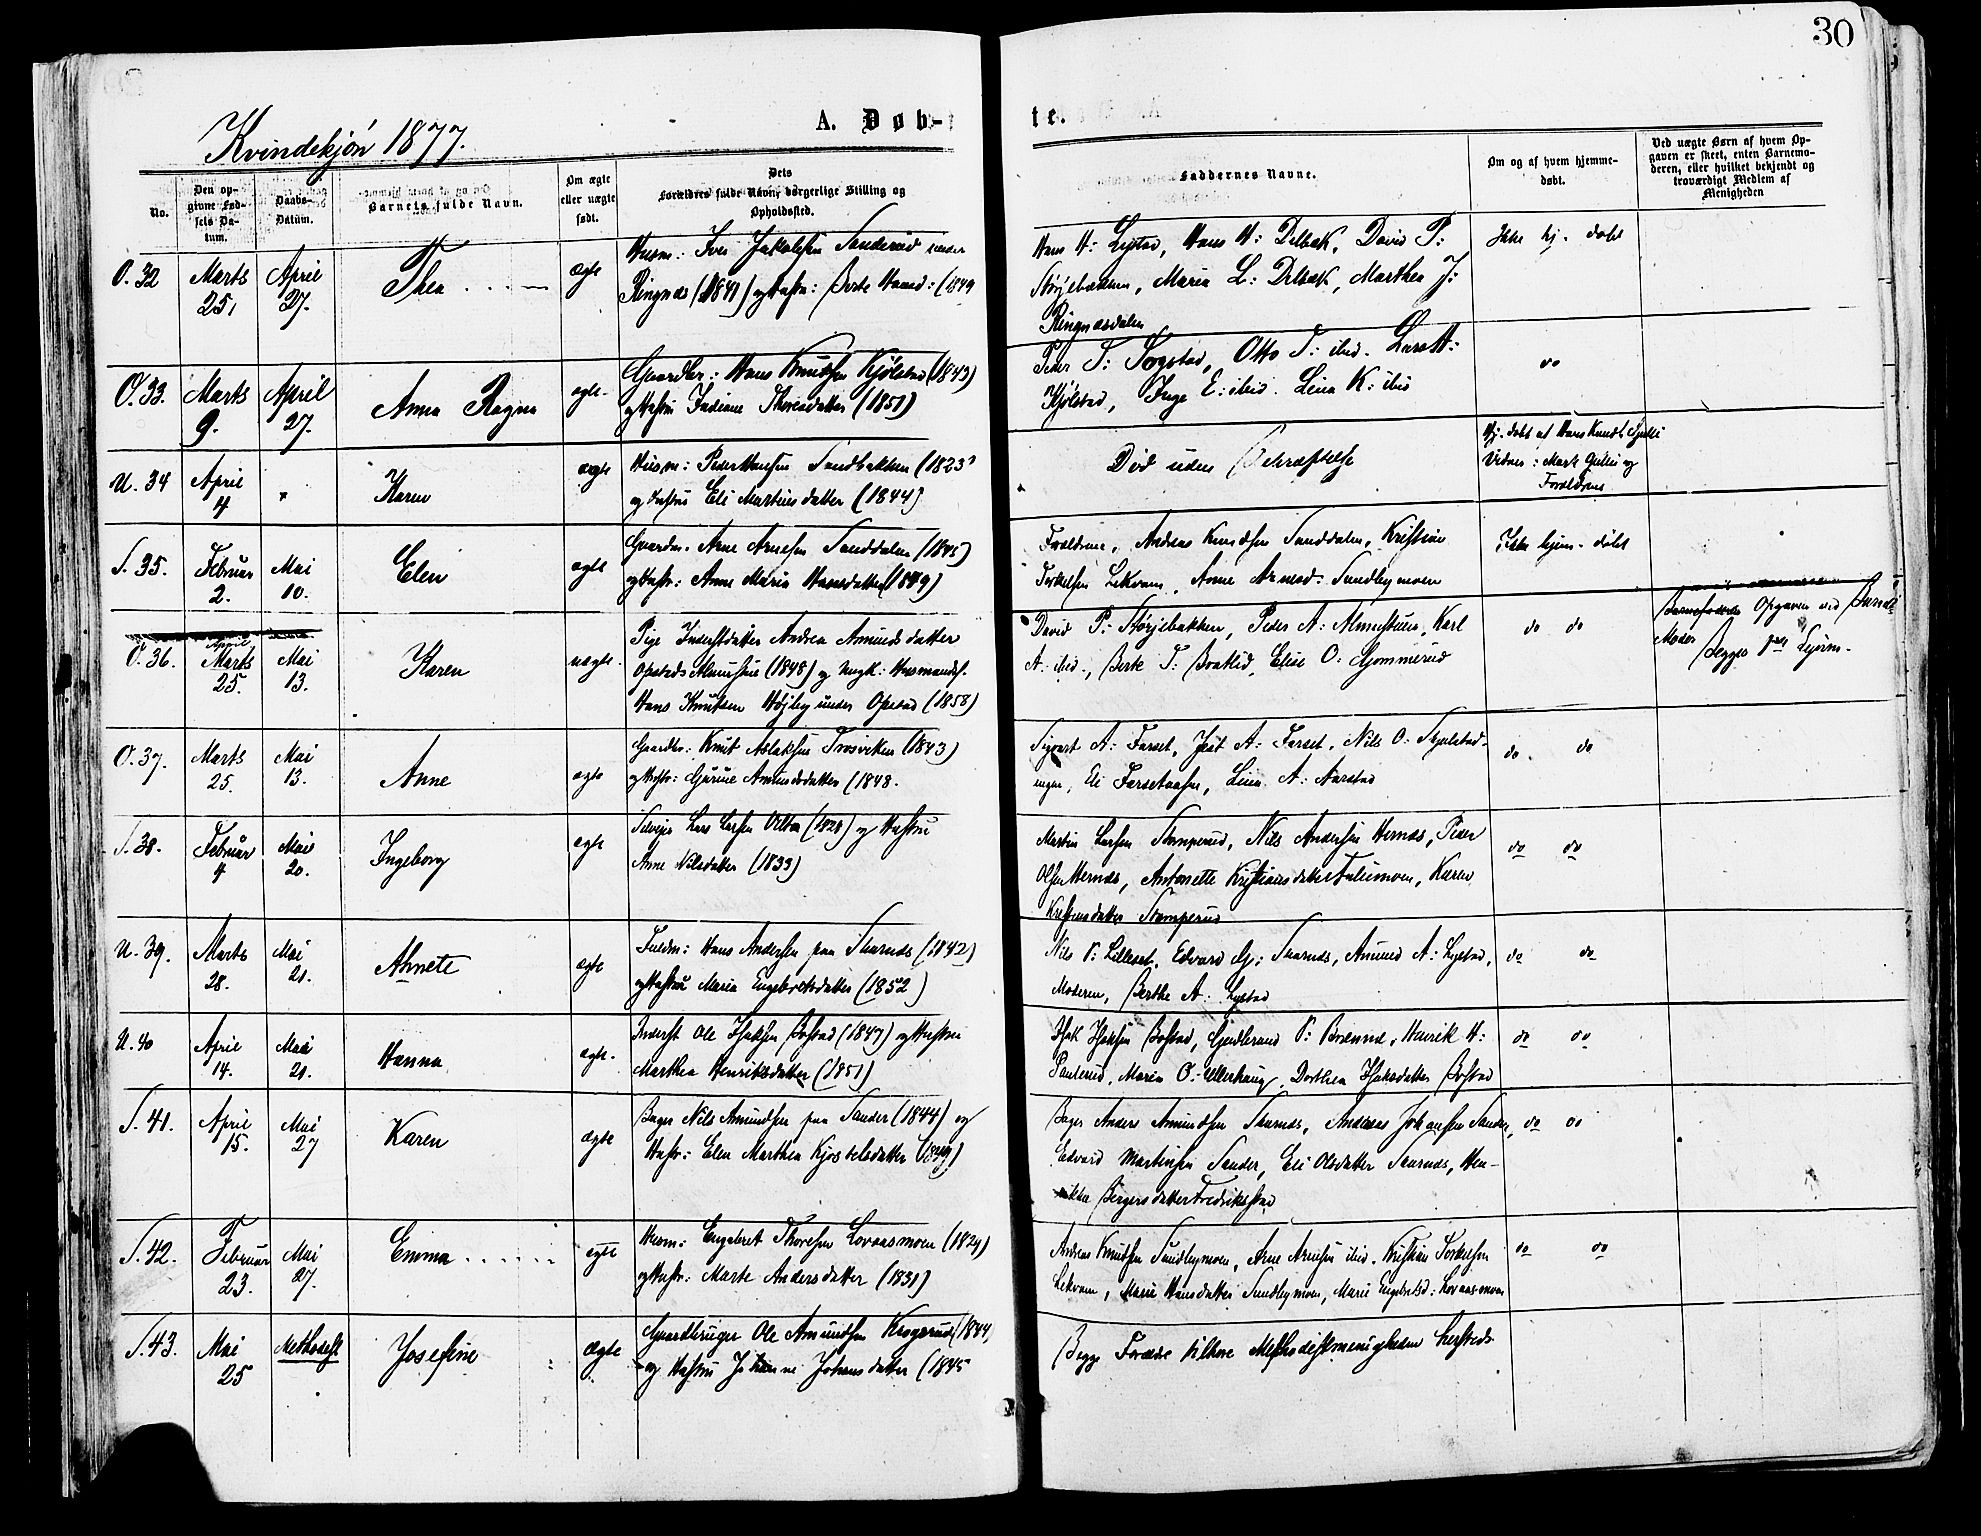 30
Kvindekjøn 1877.
A. Døb-
te.
No.
Den op-
givne Fød-
sels Da-
tum.
Daabs-
Datum.
Barnets fulde Navn.
Om ægte
eller uægte
født.
Dets
Forældres fulde Navn, borgerlige Stilling og
Opholdssted.
Faddernes Navne.
Om og af hvem hjemme-
døbt.
Ved uægte Børn af hvem Op-
gaven er skeet, enten Barnemo-
deren, eller hvilket bekjendt og
troværdigt Medlem af
Menigheden
O. 32
Marts
25,
April
27.
Thea
ægte
Husm: Iver Jakobsen Sanderud under
Ringnæs (1841) og Hustru: Berte Hansd: (1849
Hans H: Lystad, Hans H: Delbæk, David P:
Størjebakken, Maria L: Delbæk, Marthea J:
Ringnæsdalen
Ikke hj. døbt
O. 33.
Marts
9.
April
27.
Anna Ragna
ægte.
Gaardbr: Hans Knudsen Kjølstad (1843)
og Hustru Indiane Thoresdatter (1851)
Peder T: Sogstad, Otto T: ibid. Lars H:
Kjølstad, Inge E: ibid. Lina K: ibid
do
U. 34
April
4
Karen
ægte
Husm: Peder Hansen Sandbakken (1823)
og Hustru Eli Martinusdatter (1844)
Død uden Bekræftelse
Hj. døbt af Hans Knuds. Gulli
Vidner: Mart. Gulli og
Forældrene
S. 35.
Februar
2.
Mai
10.
Elen
ægte
Gaardm. Arne Arnesen Sanddalen (1845)
og Hustr: Anne Maria Hansdatter (1849)
Forældrene, Andreas Knudsen Sanddalen, Kristian
Torkelsen Lekvam, Anne Arnesd. Sundbymoen
Ikke hjem. døbt
O. 36.
April
Marts
25.
Mai
13.
Karen
uægte.
Pige Inderstdatter Andrea Amundsdatter
Opstads Almustue (1848) og Ungk: Husmands.
Hans Knutsen Højby under Opstad (1858)
David P: Størjebakken, Peder A: Almustuen, Karl
A: ibid, Berte T: Bratlid, Elise O: Gjømmerud
do do
Barnefader Opgaven ved Barnets
Moder
Begges 1ste Lejerm.
O. 37.
Marts
25.
Mai
13.
Anne
ægte
Gaardbr: Knut Aslaksen Trosviken (1843)
og Hustr: Gurine Amundsdatter (1848.
Sigvart A: Farset, A: Farset, Nils O:
engen, Eli Farsetaasen, Lina A: Aarstad
do. do
S. 38.
Februar
4
Mai
20.
Ingeborg
ægte
Selvejer Lars Larsen (1828) og Hustru
Anne Nilsdatter (1833)
Martin Larsen Stamperud, Nils Andersen Hernæs, Peder
Olsen Hernæs, Antonette Kristiansdatter, Karen
Kristensdatter Stamperud
do do
U. 39.
Marts
28.
Mai
21.
Agnete
ægte
Hans Andersen paa Skarnæs (1842)
og Hustru Maria Engebretsdatter (1852)
Nils P: Lilleset, Edvard G: Skarnæs, Amund A: Lystad,
Moderen, Berthe A: Lystad
do do
U. 40
April
14.
Mai
21.
Hanna
ægte.
Inderst Ole Isaksen Bofstad (1847) og Hustru
Marthea Henriksdatter (1851)
Isak Isaksen Bofstad, Gudbrand P: Brænnæ, Henrik H:
Paulerud, Maria O: Ullerhaug, Dorthea Isaksdatter Bofstad
do do
S. 41.
April
15.
Mai
27
Karen
ægte
Bager Nils Amundsen paa Sander (1844) og
Hustr: Elen Marthea Kjostelsdatter
Bager Anders Amundsen Skarnæs, Andreas Johansen Sander,
Edvard Martinsen Sander, Eli Olsdatter Skarnæs, Hen-
rikke Birgersdatter Fredrikstad
do do
S. 42.
Februar
23.
Mai
27.
Emma
ægte
Husm: Engebret Thoresen Lovaasmoen (1829)
og Hustr: Marte Andersdatter (1831)
Andreas Knudsen Sundbymoen, Arne Arnesen ibid. Kristian Torkelsen
Lekvam, Marie Hansdatter Sundbymoen, Marie Engebretsd: Lovaasmoen
do do
S. 43.
Mai
25
Methodist
Josefine
Ægte
Gaardbruger Ole Amundsen Krogsrud (1844
og Hustru Johanne Johansdatter (1845
Begge Forældre tilhøre Methodistmenigheden hersteds